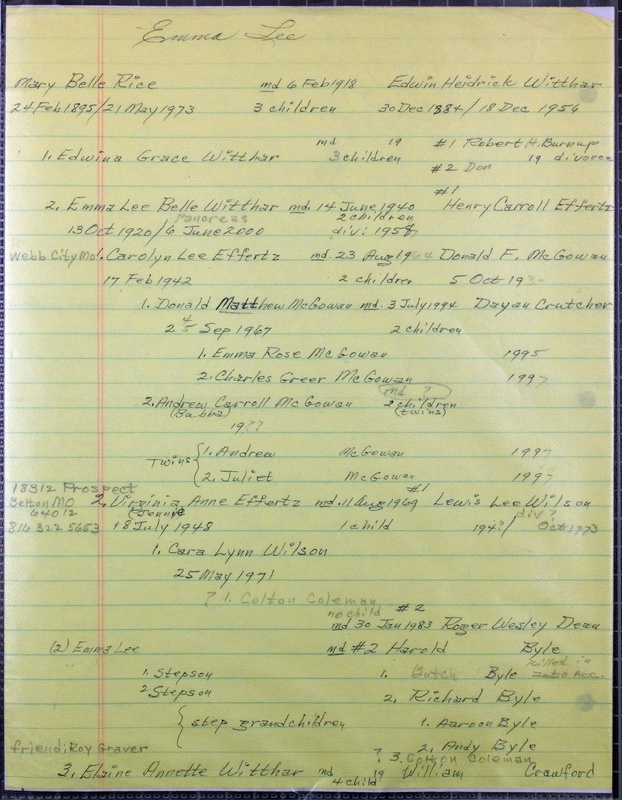 Emma Lee
Mary Belle Rice md 6 Feb 1918 Edwin Heidrick Witthar
24 Feb 1895/21 May 1973 3 children 30 Dec 1884/18 Dec 1956
md 19 #1 Robert H. Burnup
1. Edwina Grace Witthar 3 children 19 divorce
#2 Don
#1
2. Emma Lee Belle Witthar md. 14 June 1940 Henry Carroll Effertz
Pancreas 2 children
13 Oct 1920/6 June 2000 div: 1958
Webb City Mo 1. Carolyn Lee Effertz md. 23 Aug 1964 Donald F. McGowan
17 Feb 1942 2 children 5 Oct 19
1. Donald Matthew McGowan md. 3 July 1994 Dayan Crutcher
2 4/5 Sep 1967 2 children
1. Emma Rose McGowan 1995
2. Charles Greer McGowan 1997
md ?
2. Andrew Carroll McGowan 2 children
(Bubba) (twins)
19??
Twins { 1. Andrew McGowan 1997
2. Juliet McGowan 1997
18312 Prospect #1
Belton MO 2. Virginia Anne Effertz md. 11 Aug 1969 Lewis Lee Wilson
64012 (Jenny) div?
816 322 5653 18 July 1948 1 child 194?/ Oct 1973
1. Cara Lynn Wilson
25 May 1971
? 1. Colton Coleman
no child #2
md 30 Jan 1983 Roger Wesley Dean
(2) Emma Lee md #2 Harold Byle
killed in
1. Stepson 1. Butch Byle auto acc.
2 Stepson 2. Richard Byle
{ step grandchildren 1. Aaroon Byle
friend: Roy Graver 2. Andy Byle
? 3. Colton Coleman
3. Elaine Annette Witthar md 19 William Crawford
4 child